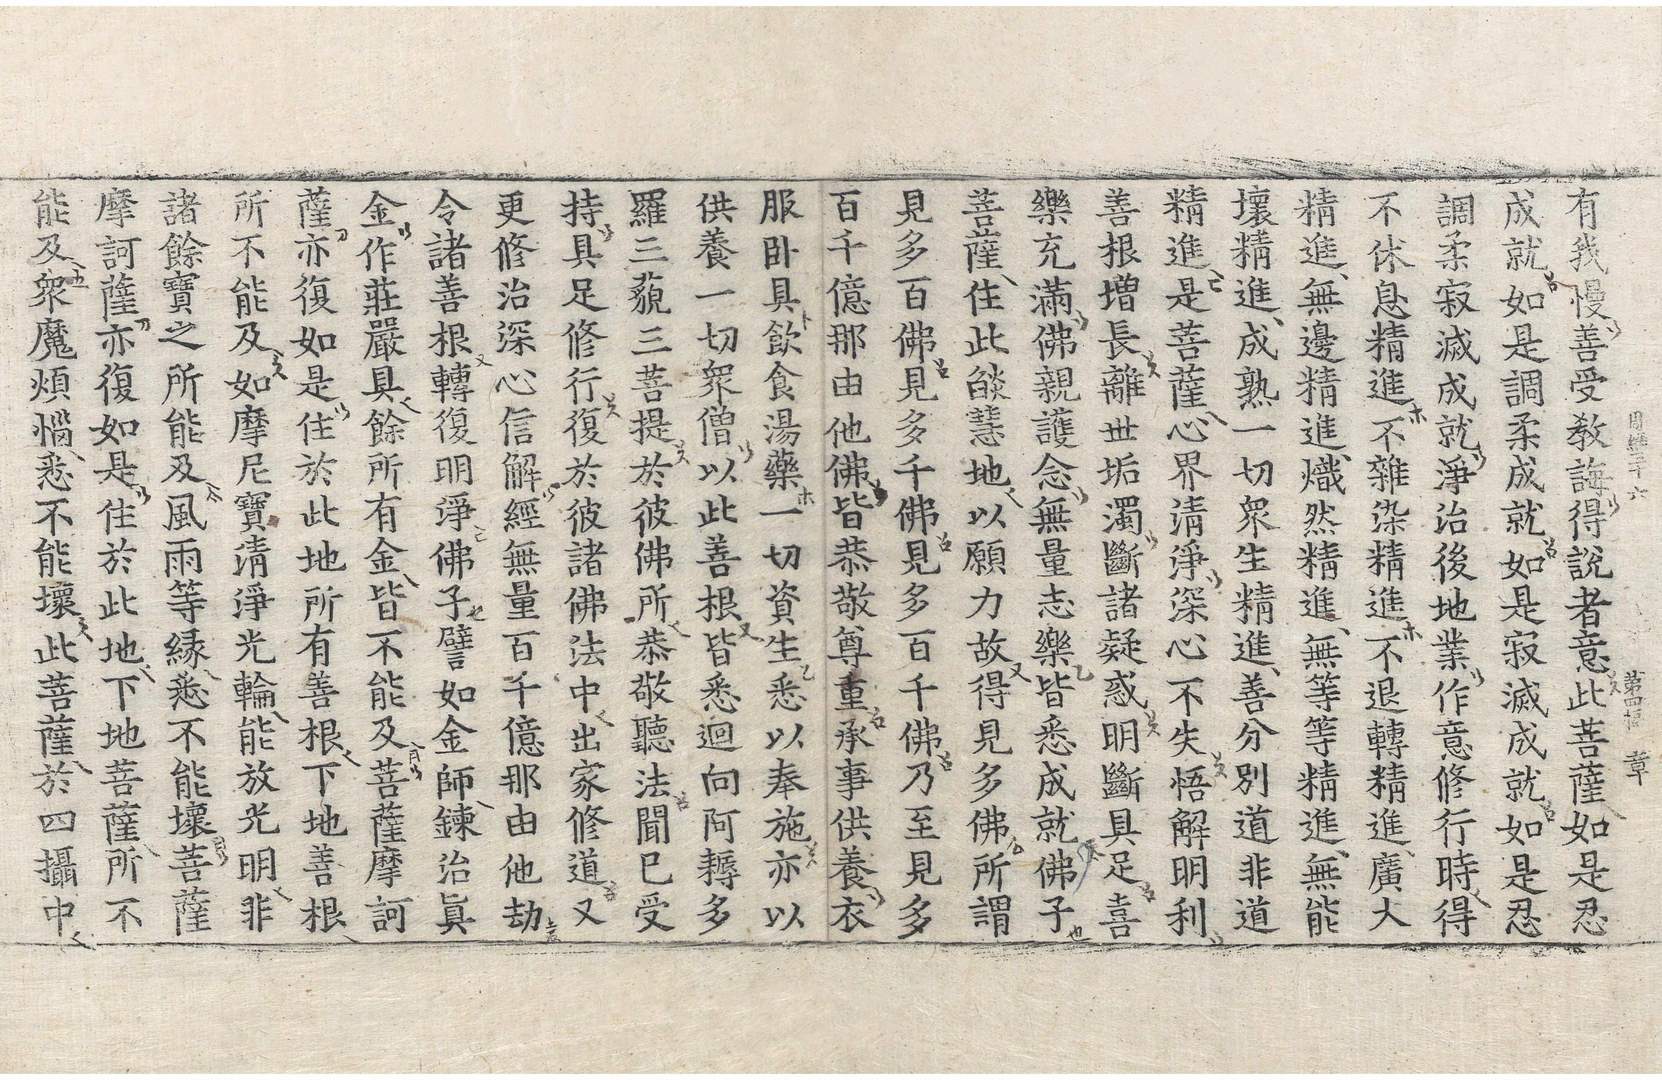 周經三十六 第四幅 章
有我慢善受教誨得說者意此菩薩如是忍
成就如是調柔成就如是寂滅成就如是忍
調柔寂滅成就淨治後地業作意修行時得
不休息精進不雜染精進不退轉精進廣大
精進無邊精進熾然精進無等等精進無能
壞精進成熟一切眾生精進善分別道非道
精進是菩薩心界清淨深心不失悟解明利
善根增長離世垢濁斷諸疑惑明斷具足喜
樂充滿佛親護念無量志樂皆悉成就佛子
菩薩住此焰慧地以願力故得見多佛所謂
見多百佛見多千佛見多百千佛乃至見多
百千億那由他佛皆恭敬尊重承事供養衣
服卧具飲食湯藥一切資生悉以奉施亦以
供養一切眾僧以此善根皆悉迴向阿耨多
羅三藐三菩提於彼佛所恭敬聽法聞已受
持具足修行復於彼諸佛法中出家修道又
更修治深心信解經無量百千億那由他劫
令諸善根轉復明淨佛子譬如金師鍊治眞
金作莊嚴具餘所有金皆不能及菩薩摩訶
薩亦復如是住於此地所有善根下地善根
所不能及如摩尼寶清淨光輪能放光明非
諸餘寶之所能及風雨等緣悉不能壞菩薩
摩訶薩亦復如是住於此地下地菩薩所不
能及眾魔煩惱悉不能壞此菩薩於四攝中